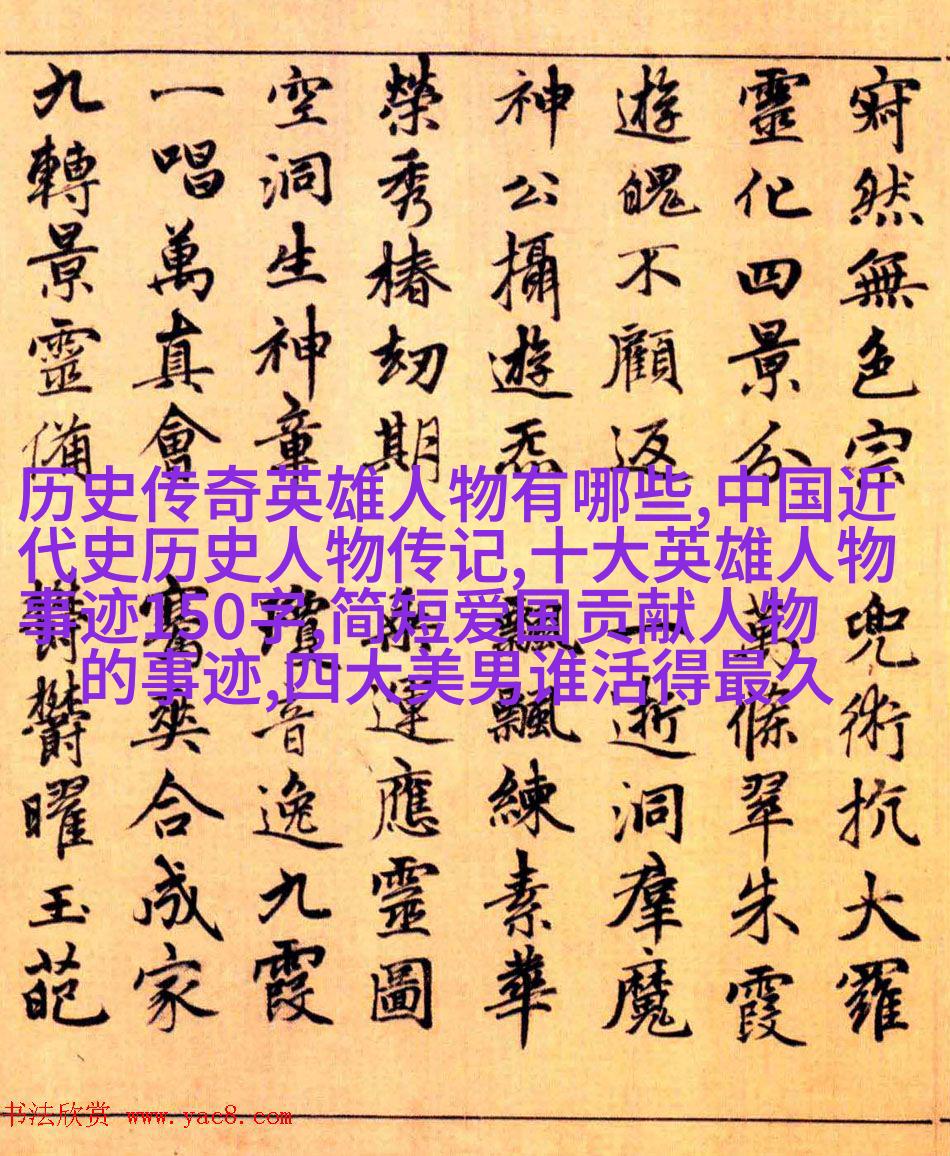 寂然無色宗 兜術抗大羅
靈化四景分 萬條翠朱霞
遊魄不顧返 一逝洞羣魔
神公攝遊炁 飄飄練素華
榮秀椿劫期 運應靈圖
空洞生神童 瓊音逸九霞
一唱萬真會 騫爽合成家
九轉景靈備 欝欝曜玉葩
历史传奇英雄人物有哪些,中国近
代史历史人物传记,十大英雄人物
事迹150字,简短爱国贡献人物
的事迹,四大美男谁活得最久
书法欣赏 www.yac8.com